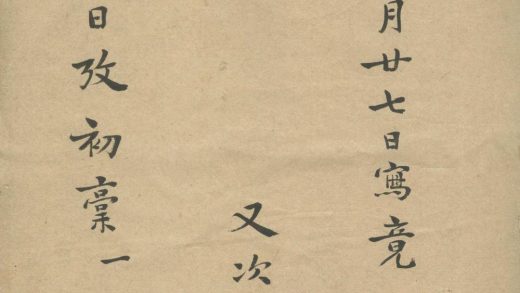 月廿七日寫竟
又次
日攷初稾一